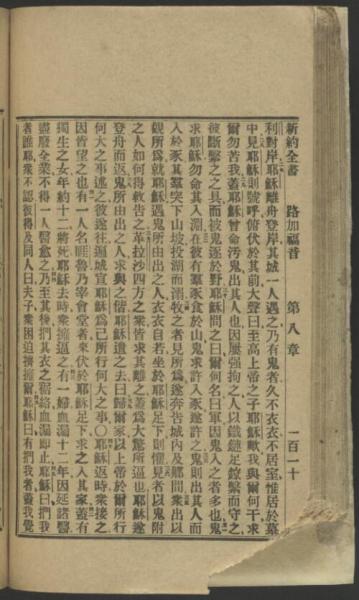 新約全書　路加福音　第八章　一百二十
利對岸耶穌離舟登岸其城一人遇之乃有鬼者久不衣衣不居室惟居於墓
中見耶穌則號呼俯伏於其前大聲曰至高上帝之子耶穌歟我與爾何干求
爾勿苦我蓋耶穌曾命汚鬼出其人也因屢強拘之人以鐵鏈足鐐繫而守之
彼斷繫之之具而被鬼逐於野耶穌問之曰爾何名曰軍因鬼入之者多也鬼
求耶穌勿命其入淵在彼有羣豕食於山鬼求許入豕遂許之鬼則出其人而
入於豕其羣突下山坡投湖而溺牧之者見所爲遂奔告城內及鄕間衆出以
觀所爲就耶穌遇鬼所由出之人衣衣自若坐於耶穌足下則懼見者以鬼附
之人如何得救告之革拉沙四方之衆皆求其離之蓋爲大驚所逼也耶穌遂
登舟而返鬼所由出之人求與之偕耶穌遣之去曰歸爾家以上帝於爾所行
何大之事述之彼遂往遍城宣耶穌爲己所行何大之事〇耶穌返時衆接之
因皆望之也有一人名睚魯乃宰會堂者來伏於耶穌足下求之入其家蓋有
獨生之女年約十二將死耶穌去時衆擁逼之有一婦血漏十二年因延諸醫
盡廢全業不得一人醫愈之乃至其後捫其衣之䍁絡血漏卽止耶穌曰捫我
者誰耶衆不認彼得及同人曰夫子衆困迫擁擠爾耶穌曰有捫我者蓋我覺